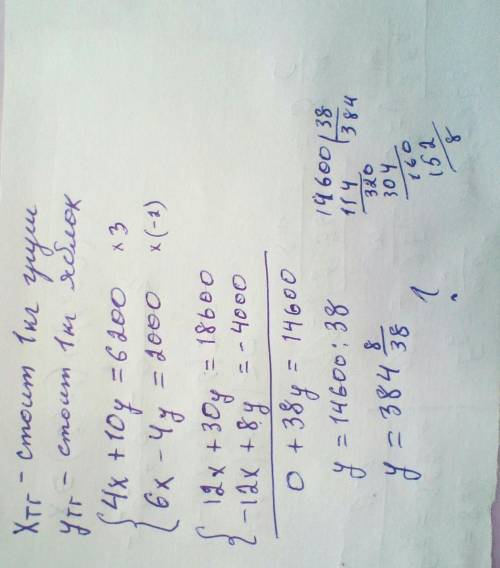 Хтг - стоит 1кг груш
утг - стоит 1кг яблок
{ 4x + 10y = 6200 × 3
6x - 4y = 2000 × (-2)
{ 12x + 30y = 18600
-12x + 8y = -4000
0 + 38y = 14600
y = 14600 : 38
y = 384 8/38
?
14600 | 38
114 384
320
304
160
152
8